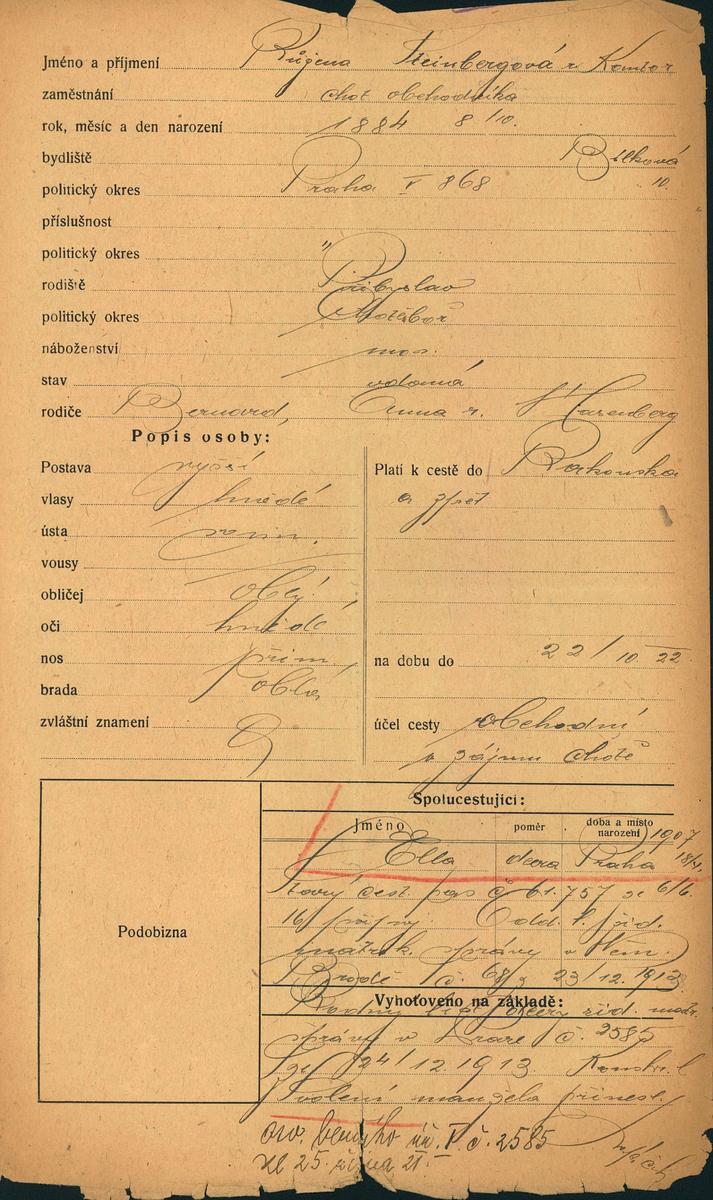 Jméno a příjmení Růžena Steinbergová r. Kantor
zaměstnání choť obchodníka
rok, měsíc a den narození 1884 8/10.
bydliště Bílková
politický okres Praha V 868 10.
příslušnost
politický okres "
rodiště Přibyslav
politický okres Chotěboř
náboženství mos.
stav vdaná
rodiče Bernard, Anna r.
Popis osoby:
Postava vyšší
vlasy hnědé
ústa
vousy
obličej oblý
oči hnědé
nos přím.
brada oblá
zvláštní znamení
Platí k cestě do Rakouska
a zpět
na dobu do 22/10 22
účel cesty obchodní
v zájmu chotě
Spolucestující:
Jméno poměr doba a místo narození 1907
Ella dcera Praha 18/
starý cest. pas č 61.757 ze 6/6.
16 Odd. l. žid.
matrik. správy v Něm.
Brodě č. 68 z 23/12. 1913
Vyhotoveno na základě:
Rodný list dcery žid. matr.
správy v Praze č. 2585
ze 24/12.1913.
Svolení manžela přinesl.
Podobizna
č. 2585
ze 25. října 21.